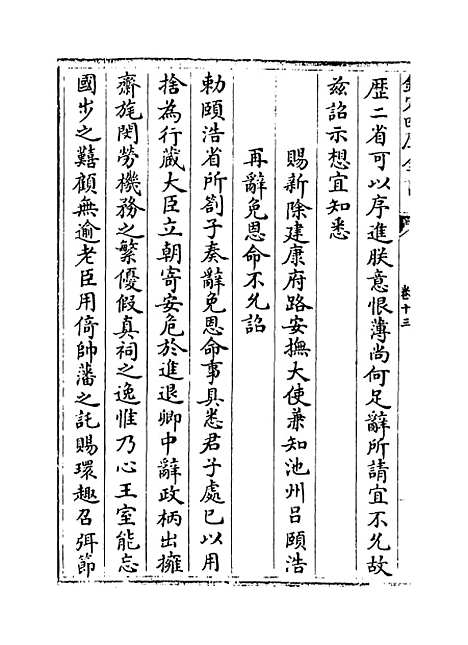 歴二省可以序進朕意恨薄尚何足辭所請宜不允故
兹詔示想宜知悉
賜新除建康府路安撫大使兼知池州呂頤浩
再辭免恩命不允詔
勅頤浩省所劄子奏辭免恩命事具悉君子處已以用
捨為行藏大臣立朝寄安危於進退卿中辭政柄出擁
齋旄閔勞機務之繁優假真祠之逸惟乃心王室能忘
國步之囏顧無逾老臣用倚帥藩之託賜環趣召弭節
卷十三